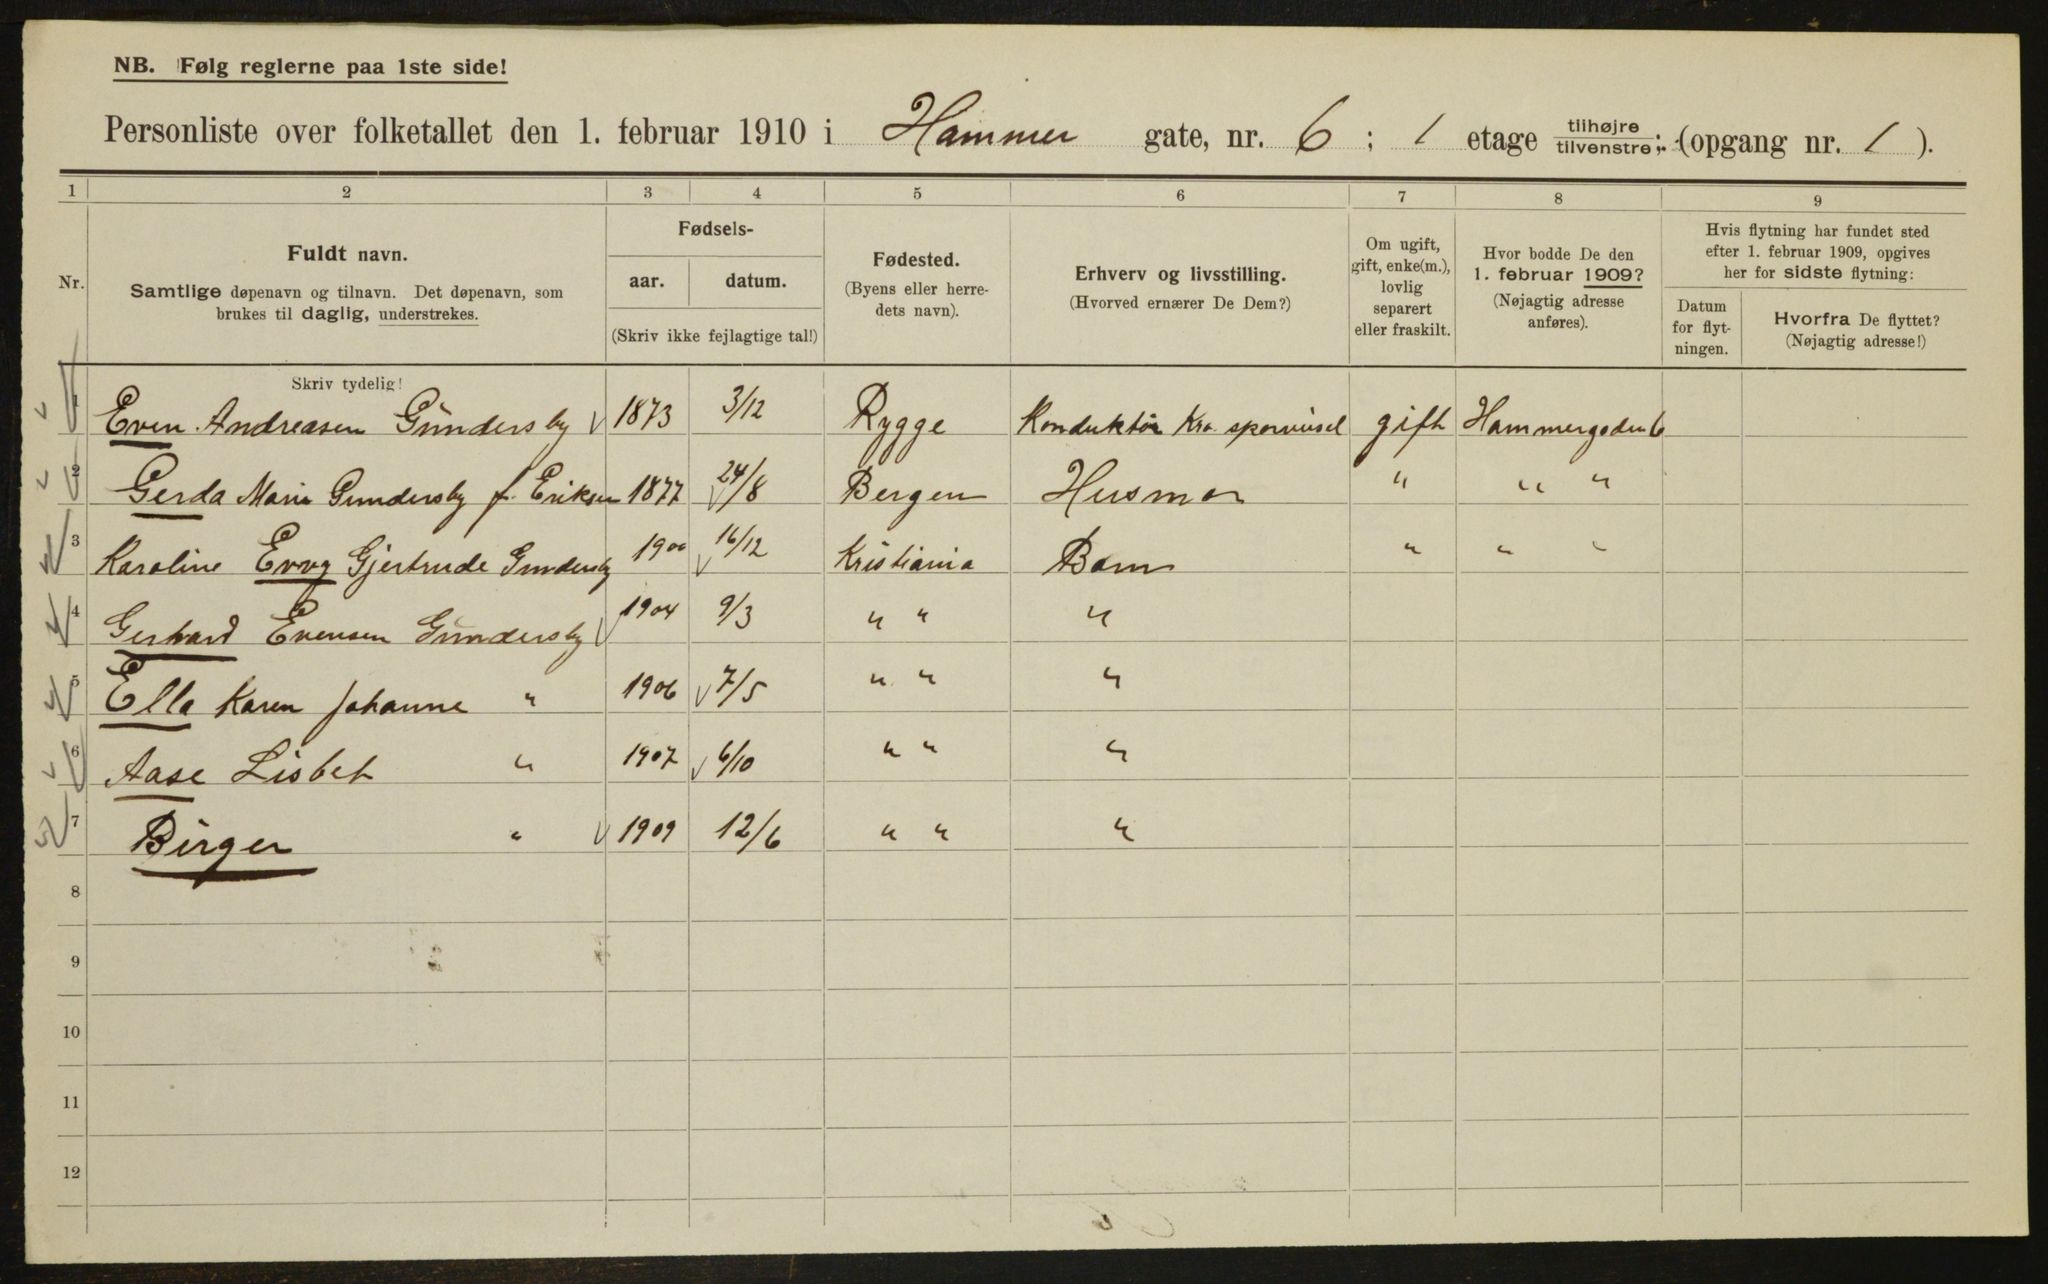 NB. Følg reglerne paa 1ste side!
Personliste over folketallet den 1. februar 1910 i Hammer gate, nr. 6 ; 1 etage tilhøjre tilvenstre ; (opgang nr. 1 ).
1 2 3 4 5 6 7 8 9
Nr.
Fuldt navn.
Samtlige døpenavn og tilnavn. Det døpenavn, som
brukes til daglig, understrekes.
Skriv tydelig!
Fødsels-
aar. datum.
(Skriv ikke fejlagtige tal!)
Fødested.
(Byens eller herre-
dets navn).
Erhverv og livsstilling.
(Hvorved ernærer De Dem?)
Om ugift,
gift, enke(m.),
lovlig
separert
eller fraskilt.
Hvor bodde De den
1. februar 1909?
(Nøjagtig adresse
anføres).
Hvis flytning har fundet sted
efter 1. februar 1909, opgives
her for sidste flytning:
Datum
for flyt-
ningen.
Hvorfra De flyttet?
(Nøjagtig adresse!)
1 Even Andreasen Gundersby 1873 3/12 Rygge Konduktør Kra. sporveisel gift Hammergaden 6
2 Gerda Marie Gundersby f. Eriksen 1877 24/8 Bergen Husmor " " "
3 Karoline Evvy Gjertrude Gundersby 1900 16/12 Kristiania Barn " " "
4 Gerhard Evensen Gundersby 1904 9/3 " " "
5 Ella Karen Johanne " 1906 7/5 " " "
6 Aase Lisbet " 1907 6/10 " " "
7 Birger " 1909 12/6 " " "
8
9
10
11
12